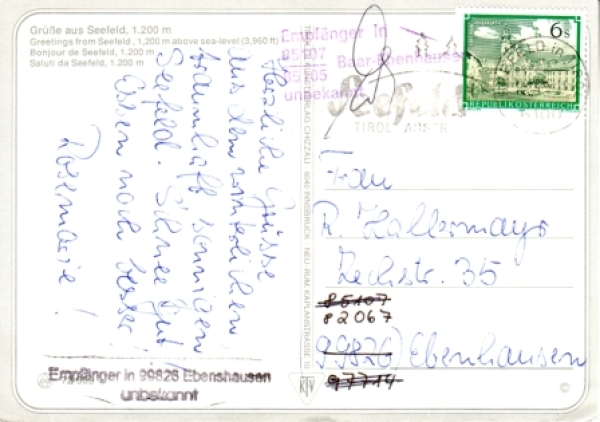 Grüße aus Seefeld, 1.200 m
Greetings from Seefeld, 1,200 m above sea-level (3,960 ft)
Bonjour de Seefeld, 1.200 m
Saluti da Seefeld, 1.200 m
Empfänger in
85107
85105 Baar-Ebenhausen
unbekannt
6 S
REPUBLIK ÖSTERREICH
Seefeld
TIROL AUSTR
Herzliche Grüsse
aus dem winterlichen
traumhaft sonnigen
Seefeld. Schnee gut,
Essen noch besser!
Rosemarie!
INNSBRUCK
NEU-RUM, KAPLANSTRASSE 10
Frau
R. Hallermayr
Rechstr. 35
85107
82067
99826 Ebenhausen
97714
Empfänger in 99826 Ebenshausen
unbekannt
KTV
©